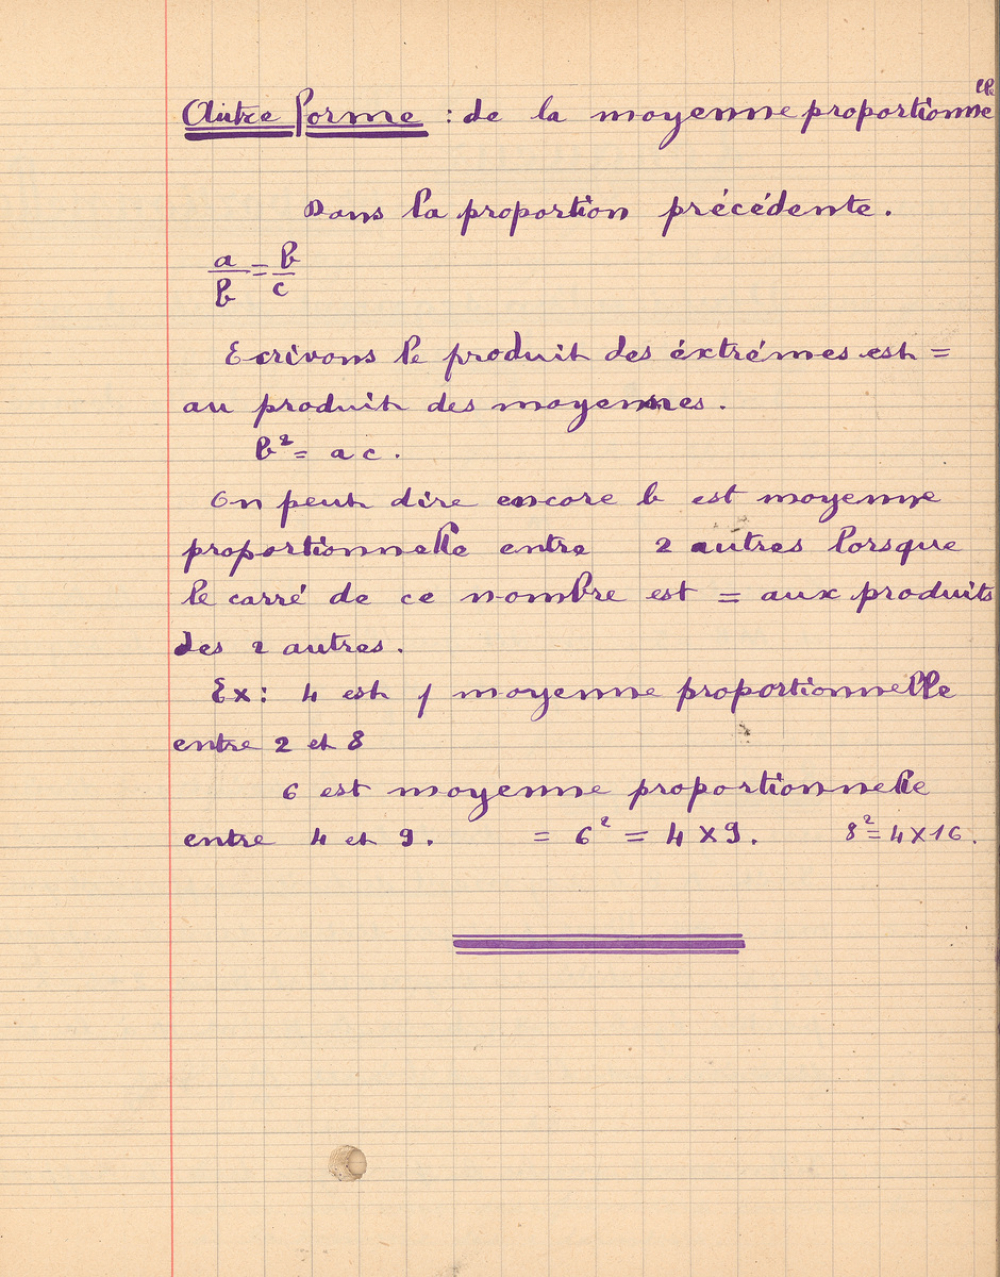 Autre forme : de la moyenne proportionnelle
Dans la proportion précédente.
a/b = b/c
Ecrivons le produit des éxtrémes est =
au produit des moyennes.
b² = a c.
On peut dire encore b est moyenne
proportionnelle entre 2 autres lorsque
le carré de ce nombre est = aux produits
des 2 autres.
Ex : 4 est / moyenne proportionnelle
entre 2 et 8
6 est moyenne proportionnelle
entre 4 et 9. = 6² = 4 x 9. 8² = 4 x 16.